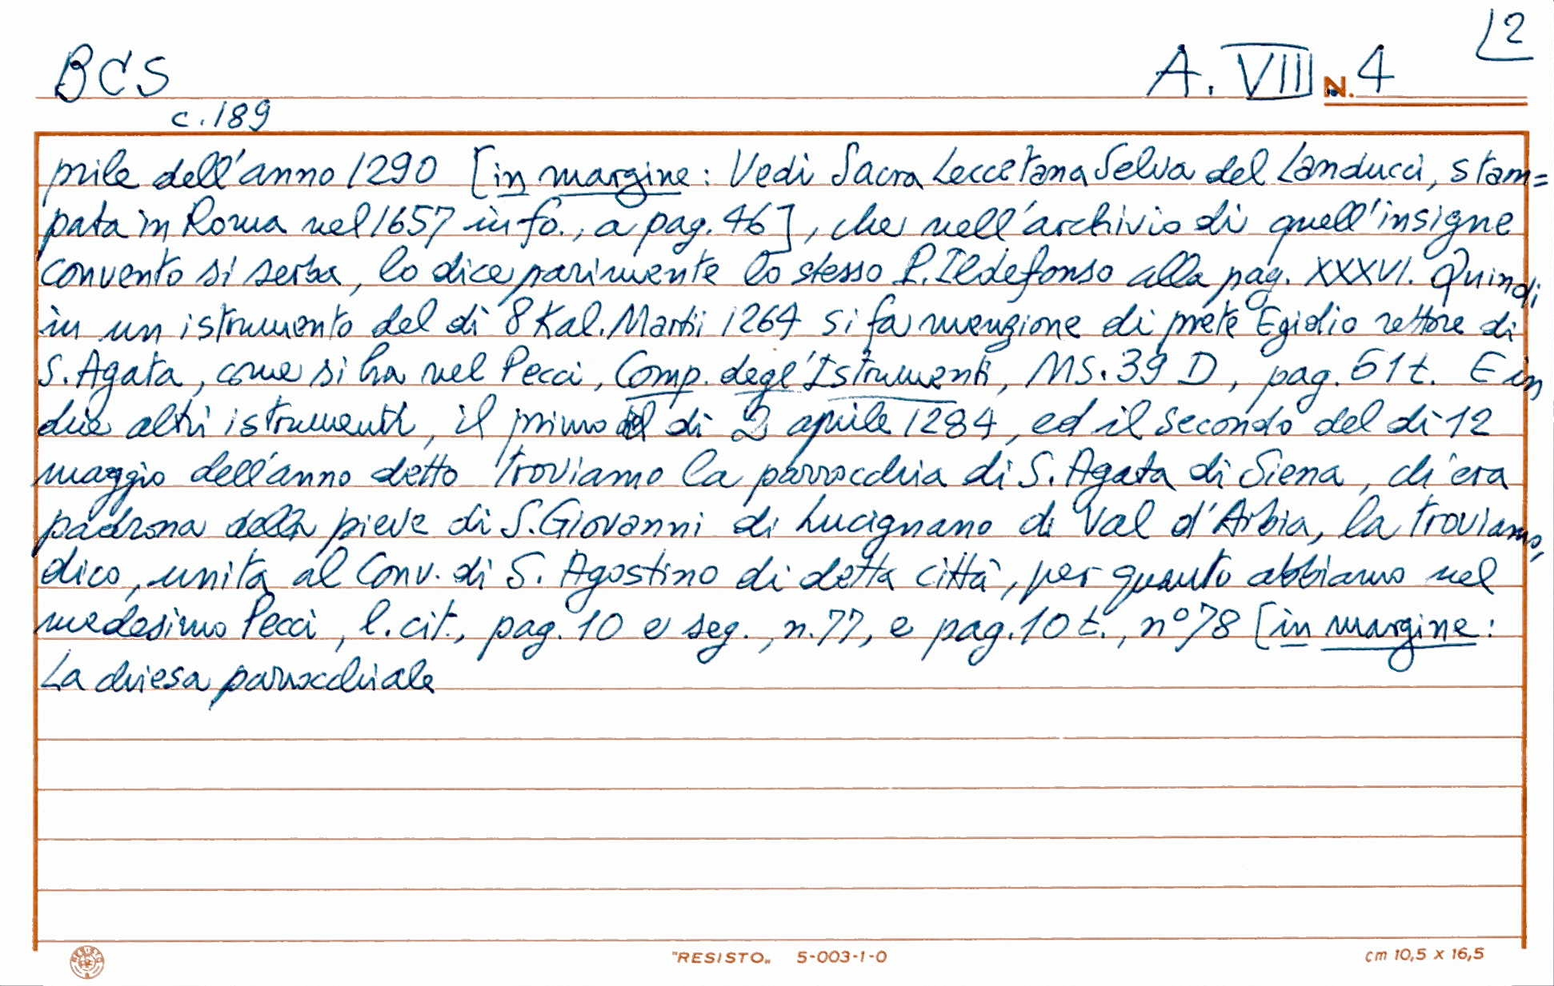 2
BCS
A. VIII N. 4
c. 189
prile dell'anno 1290 [in margine: Vedi Sacra Leccetana Selva del Landucci, stam=
pata in Roma nel 1657 in fo., a pag. 46], che nell'archivio di quell'insigne
convento si serba, lo dice parimente lo stesso P. Ildefonso alla pag. XXXVI. Quindi
in un istrumento del dì 8 Kal. Martii 1264 si fa menzione di prete Egidio rettore di
S. Agata, come si ha nel Pecci, Comp. degl'Istrumenti, MS. 39 D, pag. 51t. E in
due altri istrumenti, il primo del dì 2 aprile 1284, ed il secondo del dì 12
maggio dell'anno detto troviamo la parrocchia di S. Agata di Siena, ch'era
padrona della pieve di S. Giovanni di Lucignano di Val d'Arbia, la troviamo,
dico, unita al Conv. di S. Agostino di detta città, per quanto abbiamo nel
medesimo Pecci, l. cit., pag. 10 e seg., n. 77, e pag. 10 t., n° 78 [in margine:
La chiesa parrocchiale
"RESISTO„ 5-003-1-0
cm 10,5 x 16,5